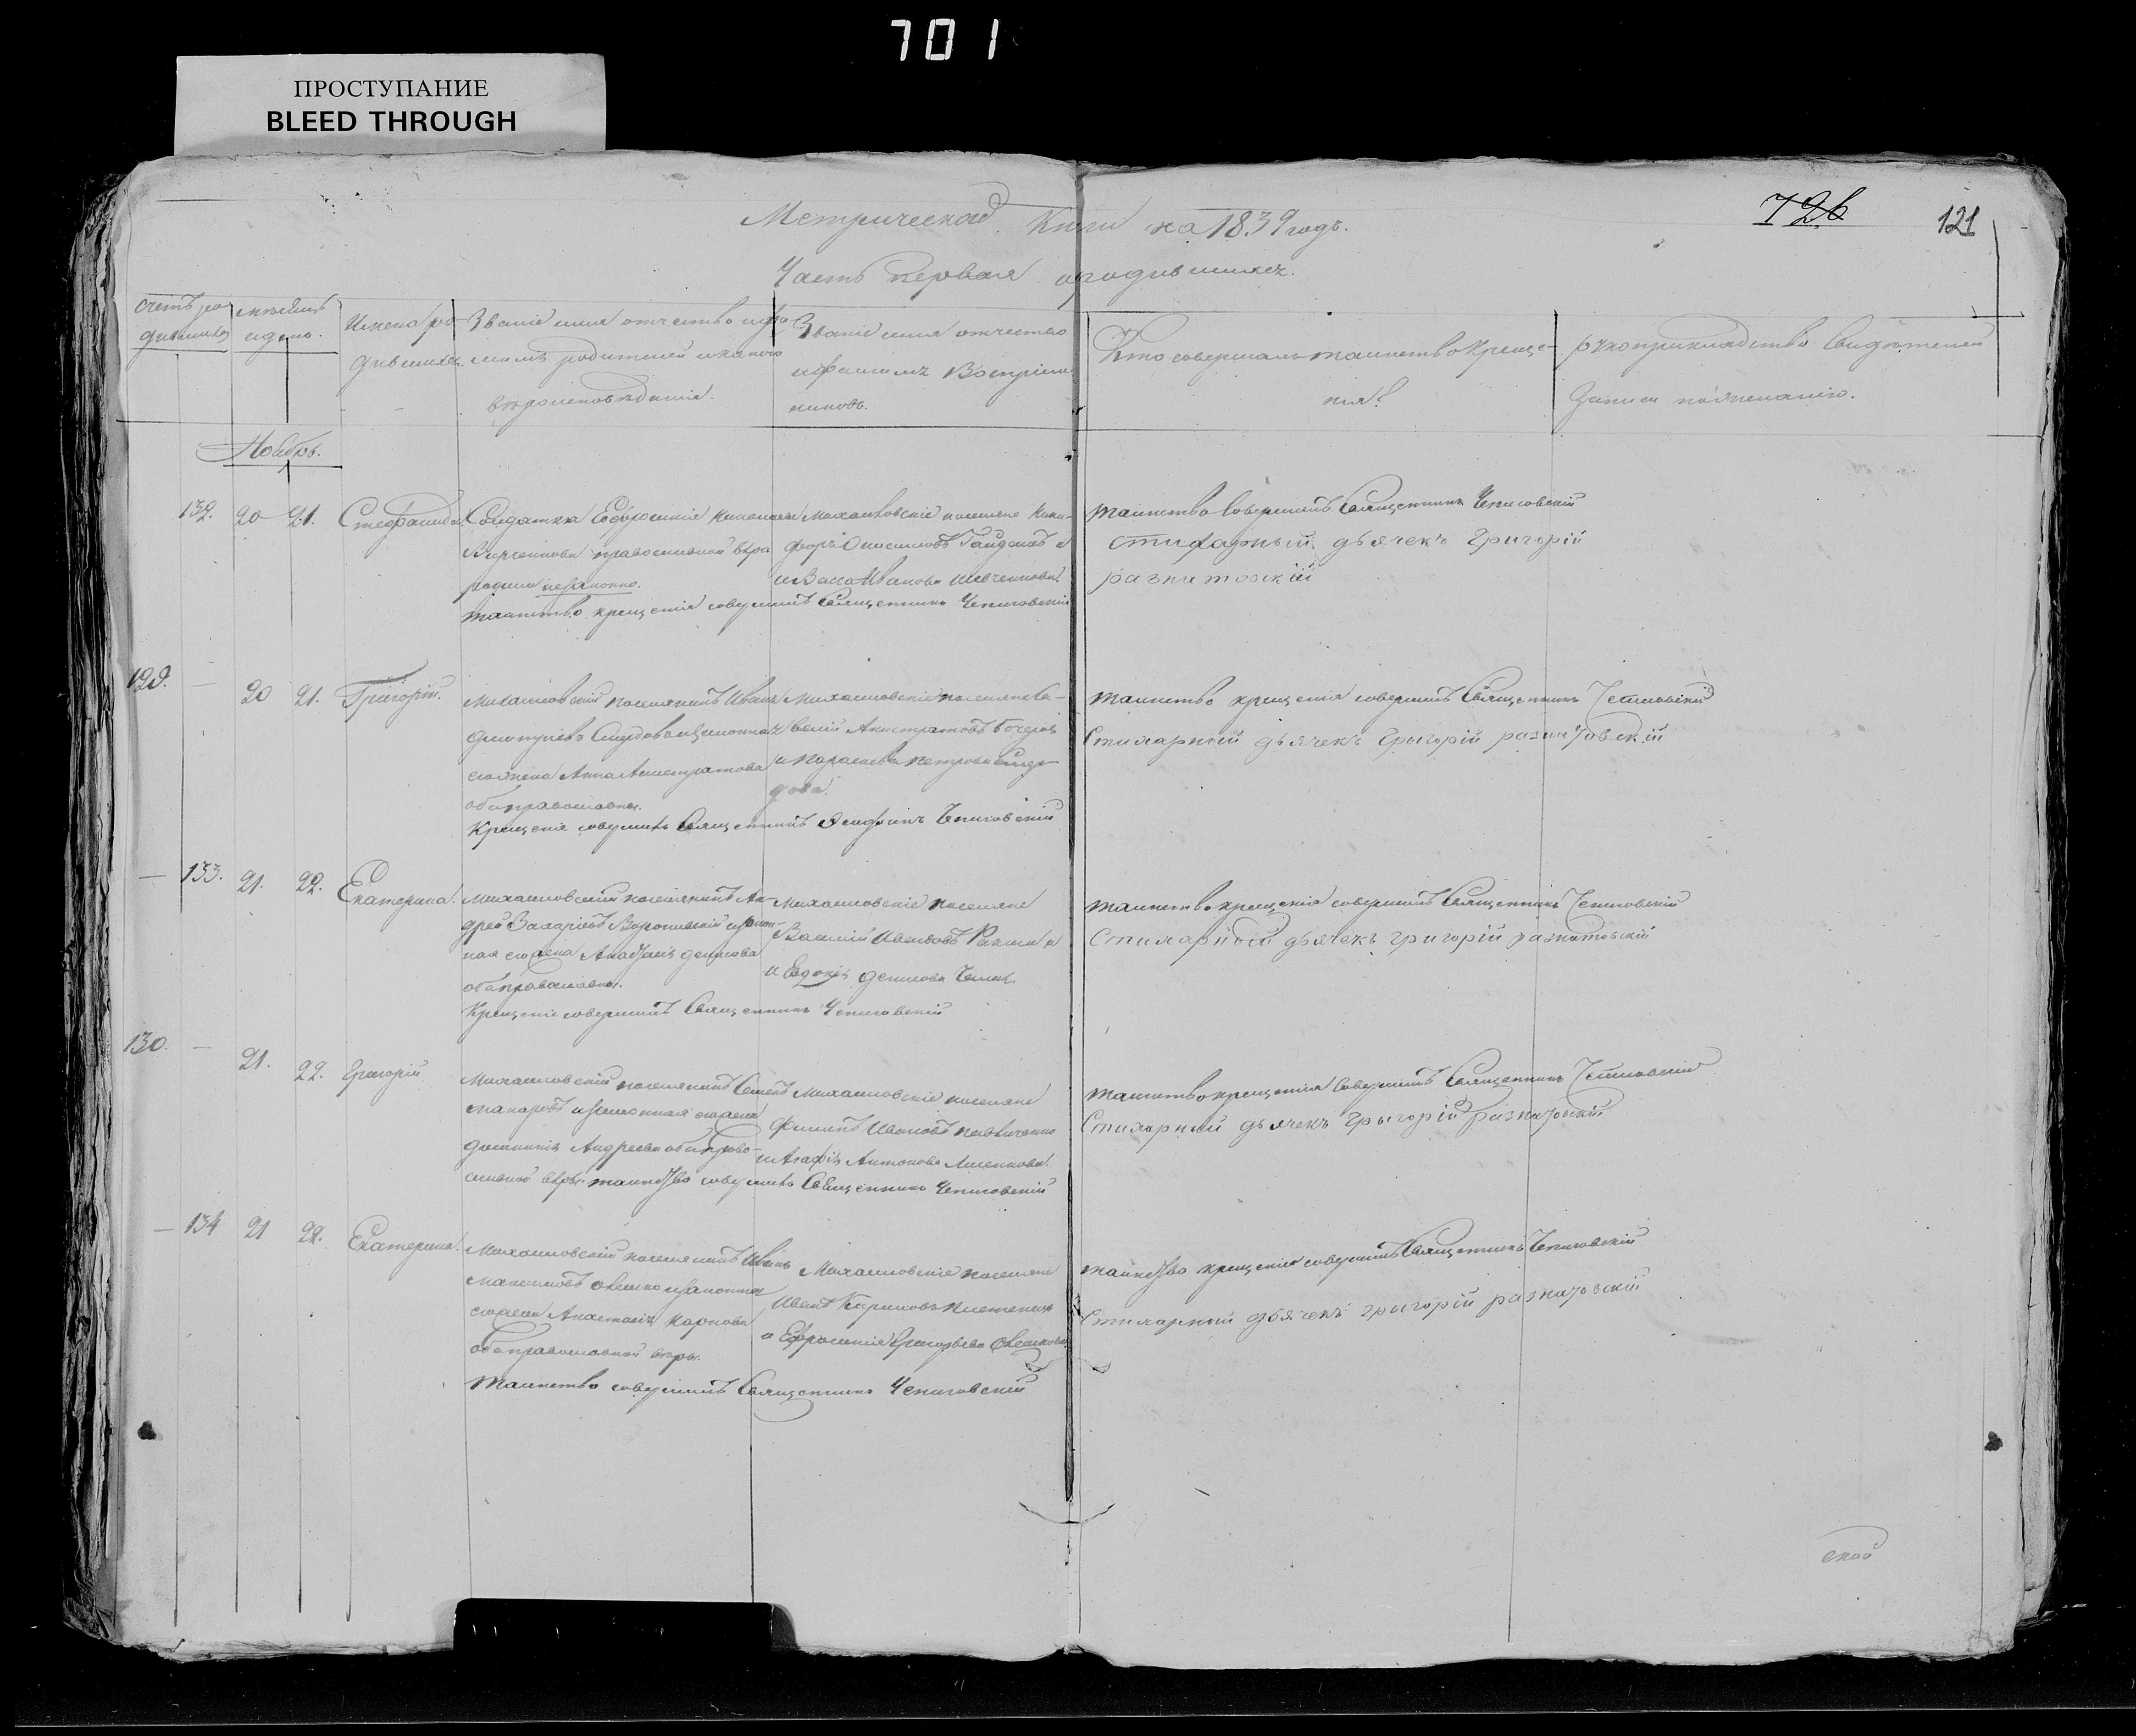 701
ПРОСТУПАНИЕ
BLEED THROUGH
726
121
Метрической Книги на 1839 годъ.
Часть первая о родившихся.
Счетъ ро
дившихся
мѣсяцъ
и день.
Имена ро
дившихся.
Званіе имя отчество и фа
милія родителей и какого
вѣроисповѣданія.
Званіе имя отчество
и фамилія Воспріем
никовъ.
Кто совершалъ таинство Креще-
нія?
рукоприкладство Свидѣтелей
Записи по желанію.
Ноябрь.
132. 20 21. Стефанида.
Солдатка Евфросинія
православной вѣры
родила незаконно.
таинство крещенія совершилъ Священникъ Чепиговскій
Михайловскіе поселяне Ники-
форъ Онисимовъ Гайдукъ
Иванова Шевченкова.
таинство совершилъ Священникъ Чепиговскій
стихарный дьячекъ Григорій
разнатовскій
129. — 20 21. Григорій.
Михайловскій поселянинъ Иванъ
Дмитріевъ
жена Анна
оба православны.
Крещеніе совершилъ Священникъ Чепиговскій
Михайловскіе поселяне Са-
и Параскева Петрова
дова.
таинство крещенія совершилъ Священникъ Чепиговскій
Стихарный дьячекъ Григорій разнатовскій
— 133. 21. 22. Екатерина.
Михайловскій поселянинъ Ан-
дрей Захаріевъ
ная его жена Денисова
оба православны.
Крещеніе совершилъ Священникъ Чепиговскій
Михайловскіе поселяне
Василій Ивановъ
и Евдокія Денисова
таинство крещенія совершилъ Священникъ Чепиговскій
Стихарный дьячекъ григорій разнатовскій
130. — 21. 22. Григорій
Михайловскій поселянинъ Семенъ
Макаровъ и законная жена
Домникія Андреева оба право-
славной вѣры. таинство совершилъ Священникъ Чепиговскій
Михайловскіе поселяне
Филипъ Ивановъ
и Агафія Антонова
таинство крещенія совершилъ Священникъ Чепиговскій
Стихарный дьячекъ Григорій разнатовскій
— 134 21 22. Екатерина.
Михайловскій поселянинъ Иванъ
Максимовъ и законная
его жена Анастасія Карпова
оба православной вѣры.
таинство совершилъ Священникъ Чепиговскій
Михайловскіе поселяне
Иванъ Кириловъ
и Евфросинія Григорьева
таинство крещенія совершилъ Священникъ Чепиговскій
Стихарный дьячекъ григорій разнатовскій
ской